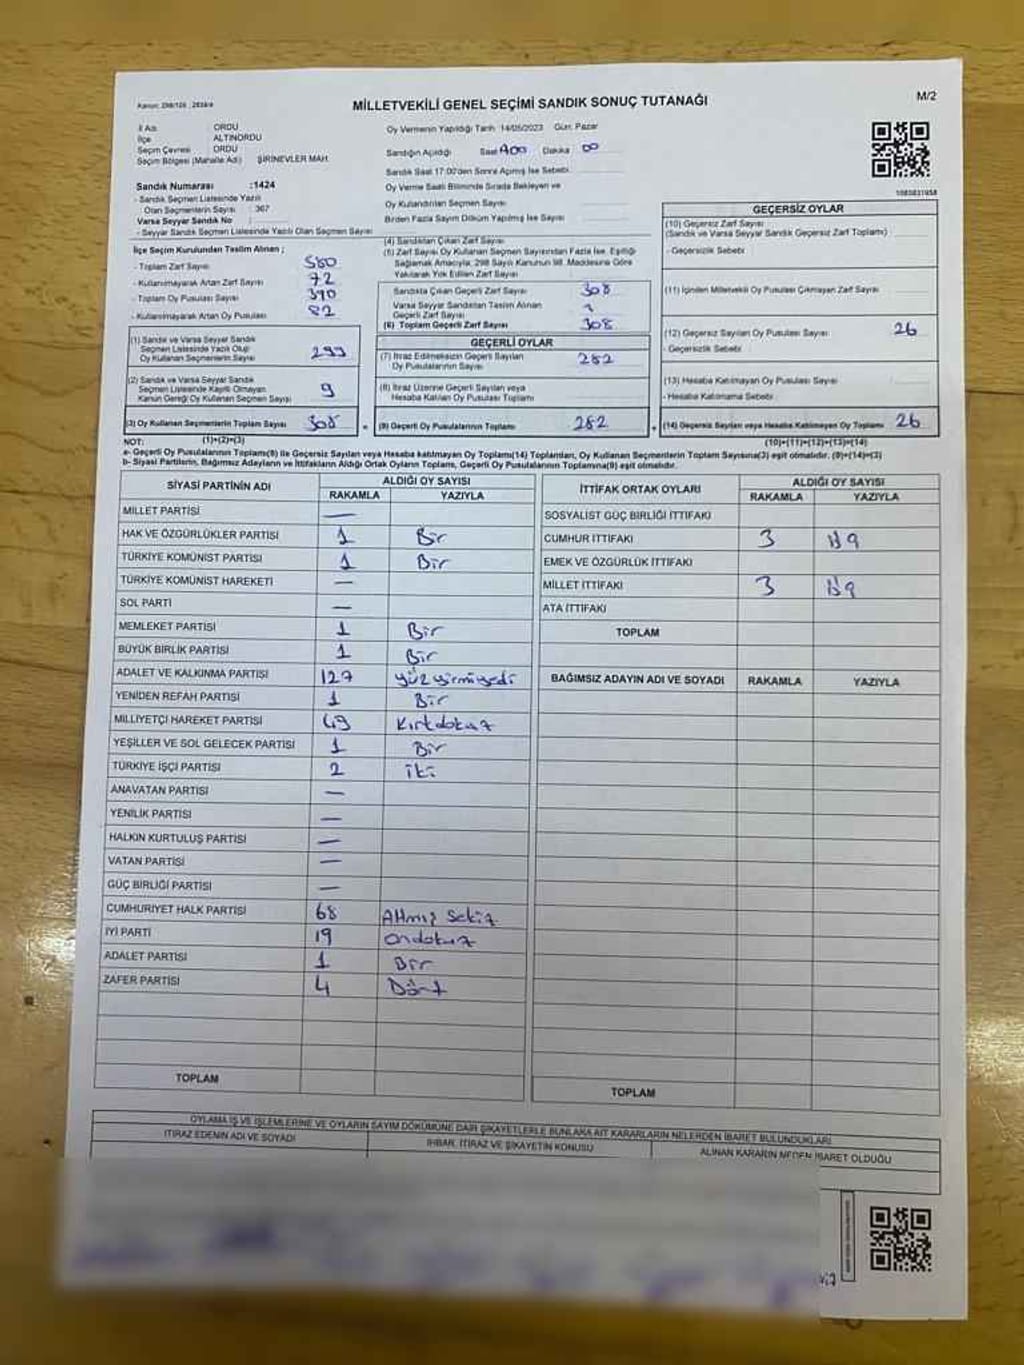 Kanun: 298/105 , 2839/4
MİLLETVEKİLİ GENEL SEÇİMİ SANDIK SONUÇ TUTANAĞI
M/2
İl Adı ORDU
İlçe ALTINORDU
Seçim Çevresi ORDU
Seçim Bölgesi (Mahalle Adı) ŞİRİNEVLER MAH.
Sandık Numarası :1424
- Sandık Seçmen Listesinde Yazılı
Olan Seçmenlerin Sayısı : 367
Varsa Seyyar Sandık No :
- Seyyar Sandık Seçmen Listesinde Yazılı Olan Seçmen Sayısı
Oy Vermenin Yapıldığı Tarih 14/05/2023 Gün: Pazar
Sandığın Açıldığı Saat Dakika 00
Sandık Saat 17:00'den Sonra Açılmış İse Sebebi
Oy Verme Saati Bitiminde Sırada Bekleyen ve
Oy Kullandırılan Seçmen Sayısı
Birden Fazla Sayım Döküm Yapılmış İse Sayısı
İlçe Seçim Kurulundan Teslim Alınan ;
- Toplam Zarf Sayısı
- Kullanılmayarak Artan Zarf Sayısı 72
- Toplam Oy Pusulası Sayısı
- Kullanılmayarak Artan Oy Pusulası 82
(1) Sandık ve Varsa Seyyar Sandık
Seçmen Listesinde Yazılı Olup
Oy Kullanan Seçmenlerin Sayısı 299
(2) Sandık ve Varsa Seyyar Sandık
Seçmen Listesinde Kayıtlı Olmayan
Kanun Gereği Oy Kullanan Seçmen Sayısı 9
(3) Oy Kullanan Seçmenlerin Toplam Sayısı 308
(4) Sandıktan Çıkan Zarf Sayısı
(5) Zarf Sayısı Oy Kullanan Seçmen Sayısından Fazla İse, Eşitliği
Sağlamak Amacıyla, 298 Sayılı Kanunun 98. Maddesine Göre
Yakılarak Yok Edilen Zarf Sayısı
Sandıkta Çıkan Geçerli Zarf Sayısı 308
Varsa Seyyar Sandıktan Teslim Alınan
Geçerli Zarf Sayısı
(6) Toplam Geçerli Zarf Sayısı 308
GEÇERLİ OYLAR
(7) İtiraz Edilmeksizin Geçerli Sayılan
Oy Pusulalarının Sayısı 282
(8) İtiraz Üzerine Geçerli Sayılan veya
Hesaba Katılan Oy Pusulası Toplamı
= (9) Geçerli Oy Pusulalarının Toplamı 282
1083831958
GEÇERSİZ OYLAR
(10) Geçersiz Zarf Sayısı
(Sandık ve Varsa Seyyar Sandık Geçersiz Zarf Toplamı)
- Geçersizlik Sebebi
(11) İçinden Milletvekili Oy Pusulası Çıkmayan Zarf Sayısı
(12) Geçersiz Sayılan Oy Pusulası Sayısı 26
- Geçersizlik Sebebi
(13) Hesaba Katılmayan Oy Pusulası Sayısı
- Hesaba Katılmama Sebebi
+ (14) Geçersiz Sayılan veya Hesaba Katılmayan Oy Toplamı 26
NOT: (1)+(2)=(3) (10)+(11)+(12)+(13)=(14)
a- Geçerli Oy Pusulaları Toplamı(9) ile Geçersiz Sayılan veya Hesaba katılmayan Oy Toplamı(14) Toplamları, Oy Kullanan Seçmenlerin Toplam Sayısına(3) eşit olmalıdır. (9)+(14)=(3)
b- Siyasi Partilerin, Bağımsız Adayların ve İttifakların Aldığı Ortak Oyların Toplamı, Geçerli Oy Pusulalarının Toplamına(9) eşit olmalıdır.
SİYASİ PARTİNİN ADI ALDIĞI OY SAYISI
RAKAMLA YAZIYLA
MİLLET PARTİSİ —
HAK VE ÖZGÜRLÜKLER PARTİSİ 1 Bir
TÜRKİYE KOMÜNİST PARTİSİ 1 Bir
TÜRKİYE KOMÜNİST HAREKETİ —
SOL PARTİ —
MEMLEKET PARTİSİ 1 Bir
BÜYÜK BİRLİK PARTİSİ 1 Bir
ADALET VE KALKINMA PARTİSİ 127 Yüz yirmi yedi
YENİDEN REFAH PARTİSİ 1 Bir
MİLLİYETÇİ HAREKET PARTİSİ 49 Kırkdokuz
YEŞİLLER VE SOL GELECEK PARTİSİ 1 Bir
TÜRKİYE İŞÇİ PARTİSİ 2 iki
ANAVATAN PARTİSİ —
YENİLİK PARTİSİ —
HALKIN KURTULUŞ PARTİSİ —
VATAN PARTİSİ —
GÜÇ BİRLİĞİ PARTİSİ —
CUMHURİYET HALK PARTİSİ 68 Altmış Sekiz
İYİ PARTİ 19 Ondokuz
ADALET PARTİSİ 1 Bir
ZAFER PARTİSİ 4 Dört
TOPLAM
İTTİFAK ORTAK OYLARI ALDIĞI OY SAYISI
RAKAMLA YAZIYLA
SOSYALİST GÜÇ BİRLİĞİ İTTİFAKI
CUMHUR İTTİFAKI 3 Üç
EMEK VE ÖZGÜRLÜK İTTİFAKI
MİLLET İTTİFAKI 3 Üç
ATA İTTİFAKI
TOPLAM
BAĞIMSIZ ADAYIN ADI VE SOYADI RAKAMLA YAZIYLA
TOPLAM
OYLAMA İŞ VE İŞLEMLERİNE VE OYLARIN SAYIM DÖKÜMÜNE DAİR ŞİKAYETLERLE BUNLARA AİT KARARLARIN NELERDEN İBARET BULUNDUKLARI
İTİRAZ EDENİN ADI VE SOYADI İHBAR, İTİRAZ VE ŞİKAYETİN KONUSU ALINAN KARARIN NEDEN İBARET OLDUĞU